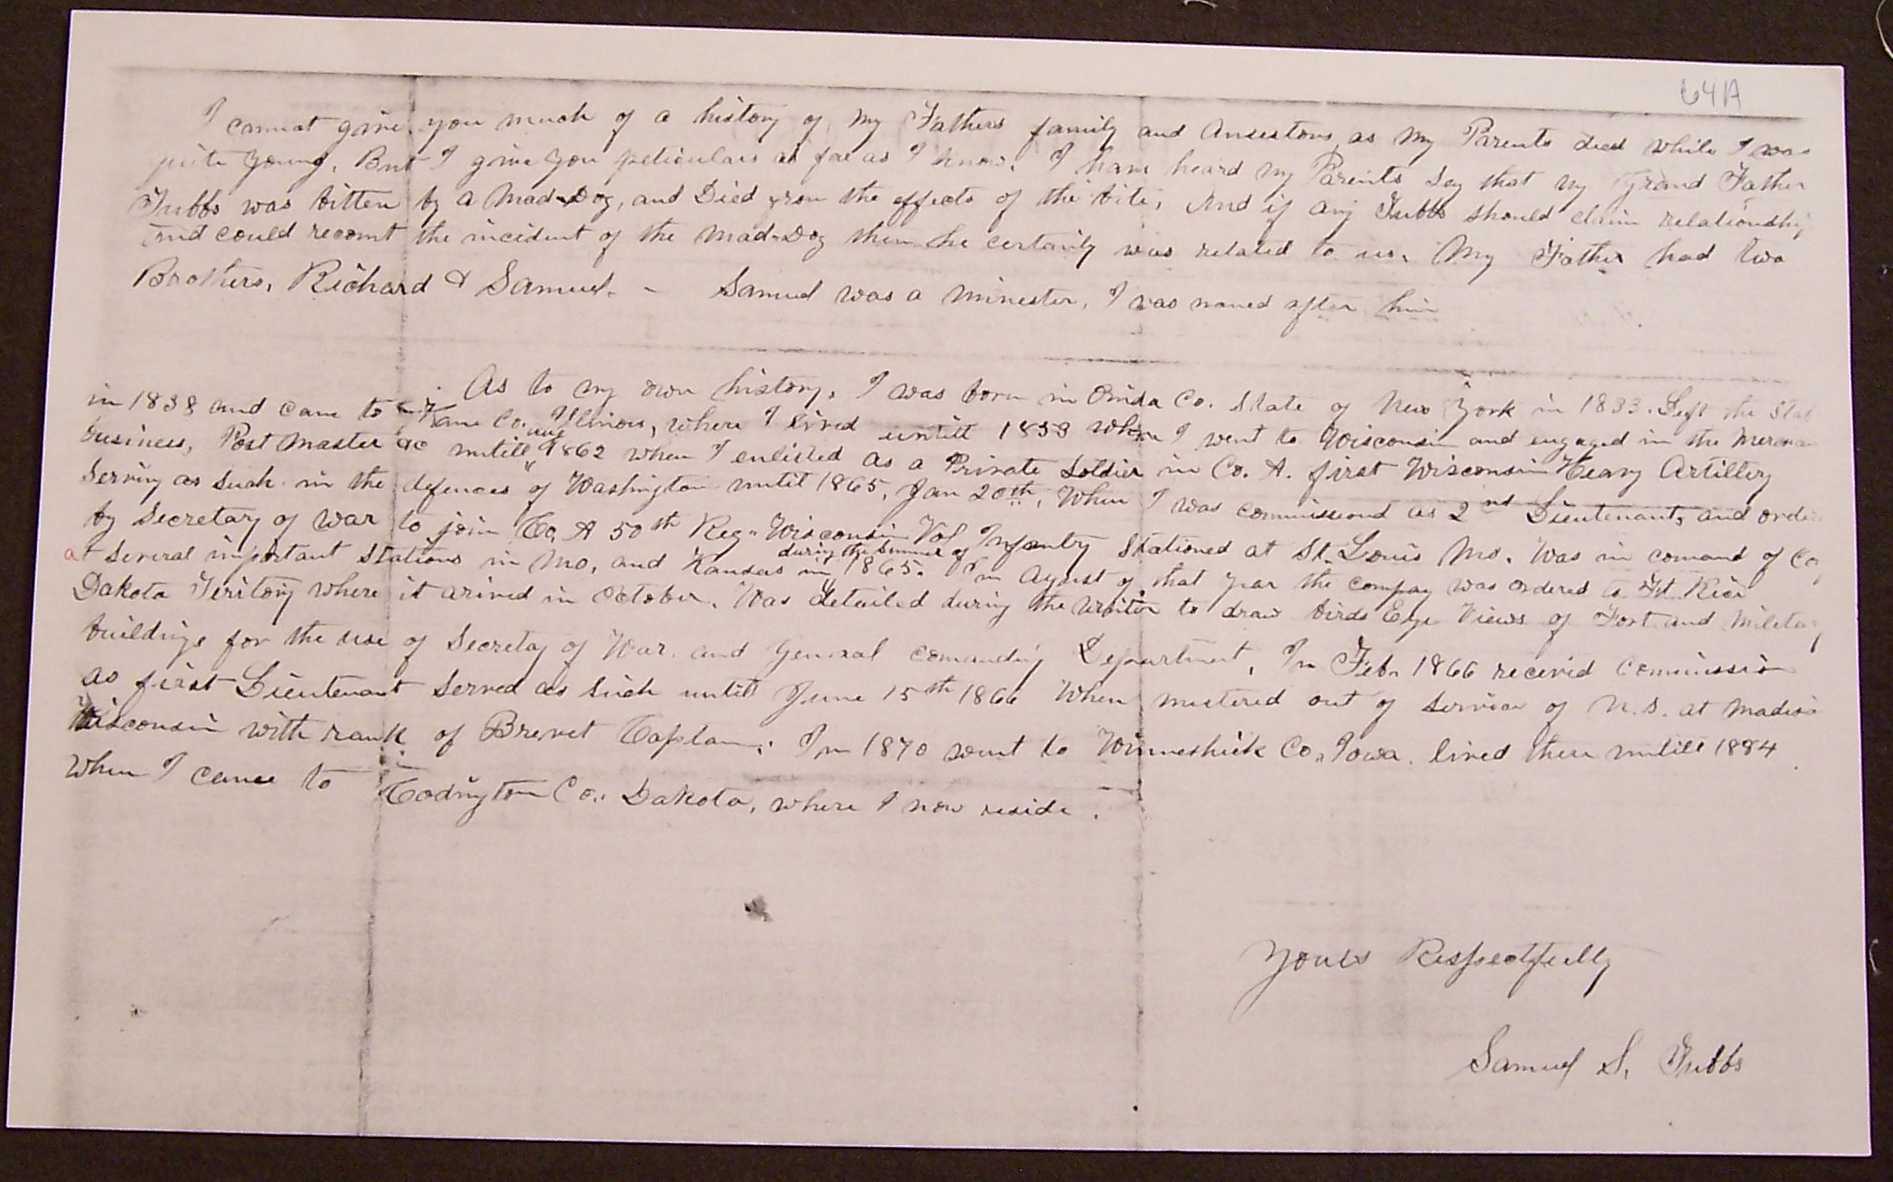 64A
I cannot give you much of a history of my Fathers family and Ansestors as my Parents died while I was
quite young. But I give you peticulars as far as I know. I have heard my Parents say that my Grand Father
Tubbs was bitten by a Mad-Dog, and Died from the effects of the bite, And if any Tubbs should claim relationship
and could recount the incident of the Mad-Dog then he certainly was related to us. My Father had two
Brothers, Richard & Samuel. - Samuel was a minester, I was named after him
As to my own history, I was born in Onida Co. State of New York in 1833. Left the Stat
in 1838 and came to Kane Co. Illinois, where I lived untill 1858 when I went to Wisconsin and engaged in the Mercan
business, Post Master &c untill 1862 when I enlisted as a Private Soldier in Co. A. first Wisconsin Heavy Artillery
Serving as such in the defences of Washington untill 1865, Jan 20th, When I was commissioned as 2nd Lieutenant, and order
by Secretary of War to join Co, A 50th Reg" Wisconsin Vol Infantry Stationed at St. Louis Mo. Was in comand of Co,
at several important stations in Mo, and Kansas in during the Summer of 1865. In Agust of that year the compay was ordered to Ft. Rice
Dakota Teritory where it arived in October. Was detailed during the winter to draw birds Eye Views of Fort and Military
buildings for the use of Secretary of War. and General comanding Department, In Feb. 1866 received Commission
as first Lieutenant served as such untill June 15th 1866 When mustered out of service of U.S. at Madiso
Wisconsin with rank of Brevet Captain. In 1870 went to Winneshiek Co. Iowa. lived there untill 1884
When I came to Codington Co., Dakota, where I now reside.
Yours Respectfully
Samuel S. Tubbs